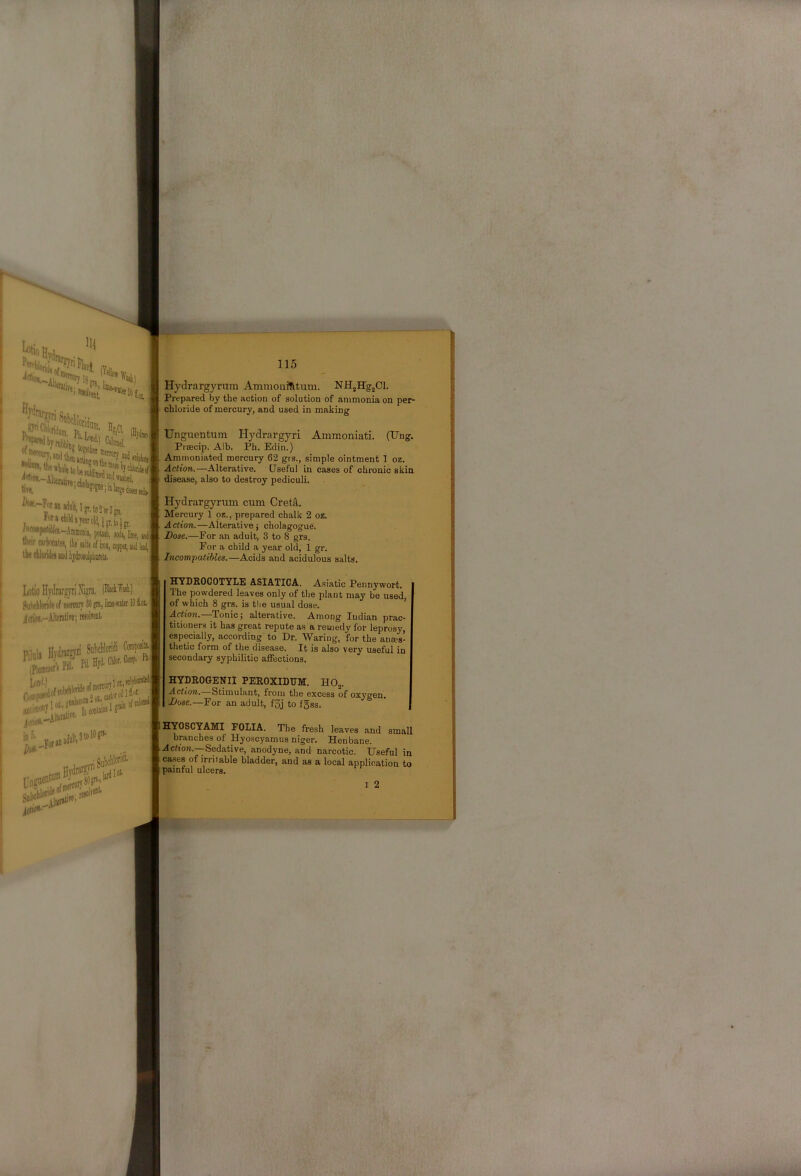 114
Lotio Hydrargyri Flava. (Yellow Wash.)
Perchloride of mercury 18 grs., lime-water 10 fl.oz.
Action.—Alterative; resolvent.
Hydrargyri Subchloridum. Hg₂Cl. (Hydrar-
gyri Chloridum. Ph. Lond.) Calomel.
Prepared by rubbing together mercury and sulphate
Dose.—For an adult, 1 gr. to 2 or 3 grs.
For a child a year old,
Incompatibles.—Ammonia, potash, soda, lime, and
their carbonates, the salts of iron, copper, and lead,
the chlorides and hydrosulphurets.
Lotio Hydrargyri Nigra. (Black Wash.)
Subchloride of mercury 30 grs., lime-water 10 fl.oz.
Action.—Alterative; resolvent.
Pilula Hydrargyri Subchloridi Composita.
(Plummer's Pill. Pil. Hyd. Chlor. Comp. Ph.
Lond.)
in 5.
Dose.—For an adult, 3 to 10 grs.
Unguentum Hydrargyri Subchloridi.
Subchloride of mercury 80 grs., lard 1 oz.
Action.—Alterative; resolvent.
115
Hydrargyrum Ammoniatum. NH₂Hg₂Cl.
Prepared by the action of solution of ammonia on per-
chloride of mercury, and used in making
Unguentum Hydrargyri Ammoniati. (Ung.
Præcip. Alb. Ph. Edin.)
Ammoniated mercury 62 grs., simple ointment 1 oz.
Action.—Alterative. Useful in cases of chronic skin
disease, also to destroy pediculi.
Hydrargyrum cum Cretâ.
Mercury 1 oz., prepared chalk 2 oz.
Action.—Alterative; cholagogue.
Dose.—For an adult, 3 to 8 grs.
For a child a year old, 1 gr.
Incompatibles.—Acids and acidulous salts.
HYDROCOTYLE ASIATICA. Asiatic Pennywort.
The powdered leaves only of the plant may be used,
of which 8 grs. is the usual dose.
Action.—Tonic; alterative. Among Indian prac-
titioners it has great repute as a remedy for leprosy,
especially, according to Dr. Waring, for the anæs-
thetic form of the disease. It is also very useful in
secondary syphilitic affections.
HYDROGENII PEROXIDUM. HO₂.
Action.—Stimulant, from the excess of oxygen.
Dose.—For an adult, fʒj to f℥ss.
HYOSCYAMI FOLIA. The fresh leaves and small
branches of Hyoscyamus niger. Henbane.
Action.—Sedative, anodyne, and narcotic. Useful in
cases of irritable bladder, and as a local application to
painful ulcers.
I 2